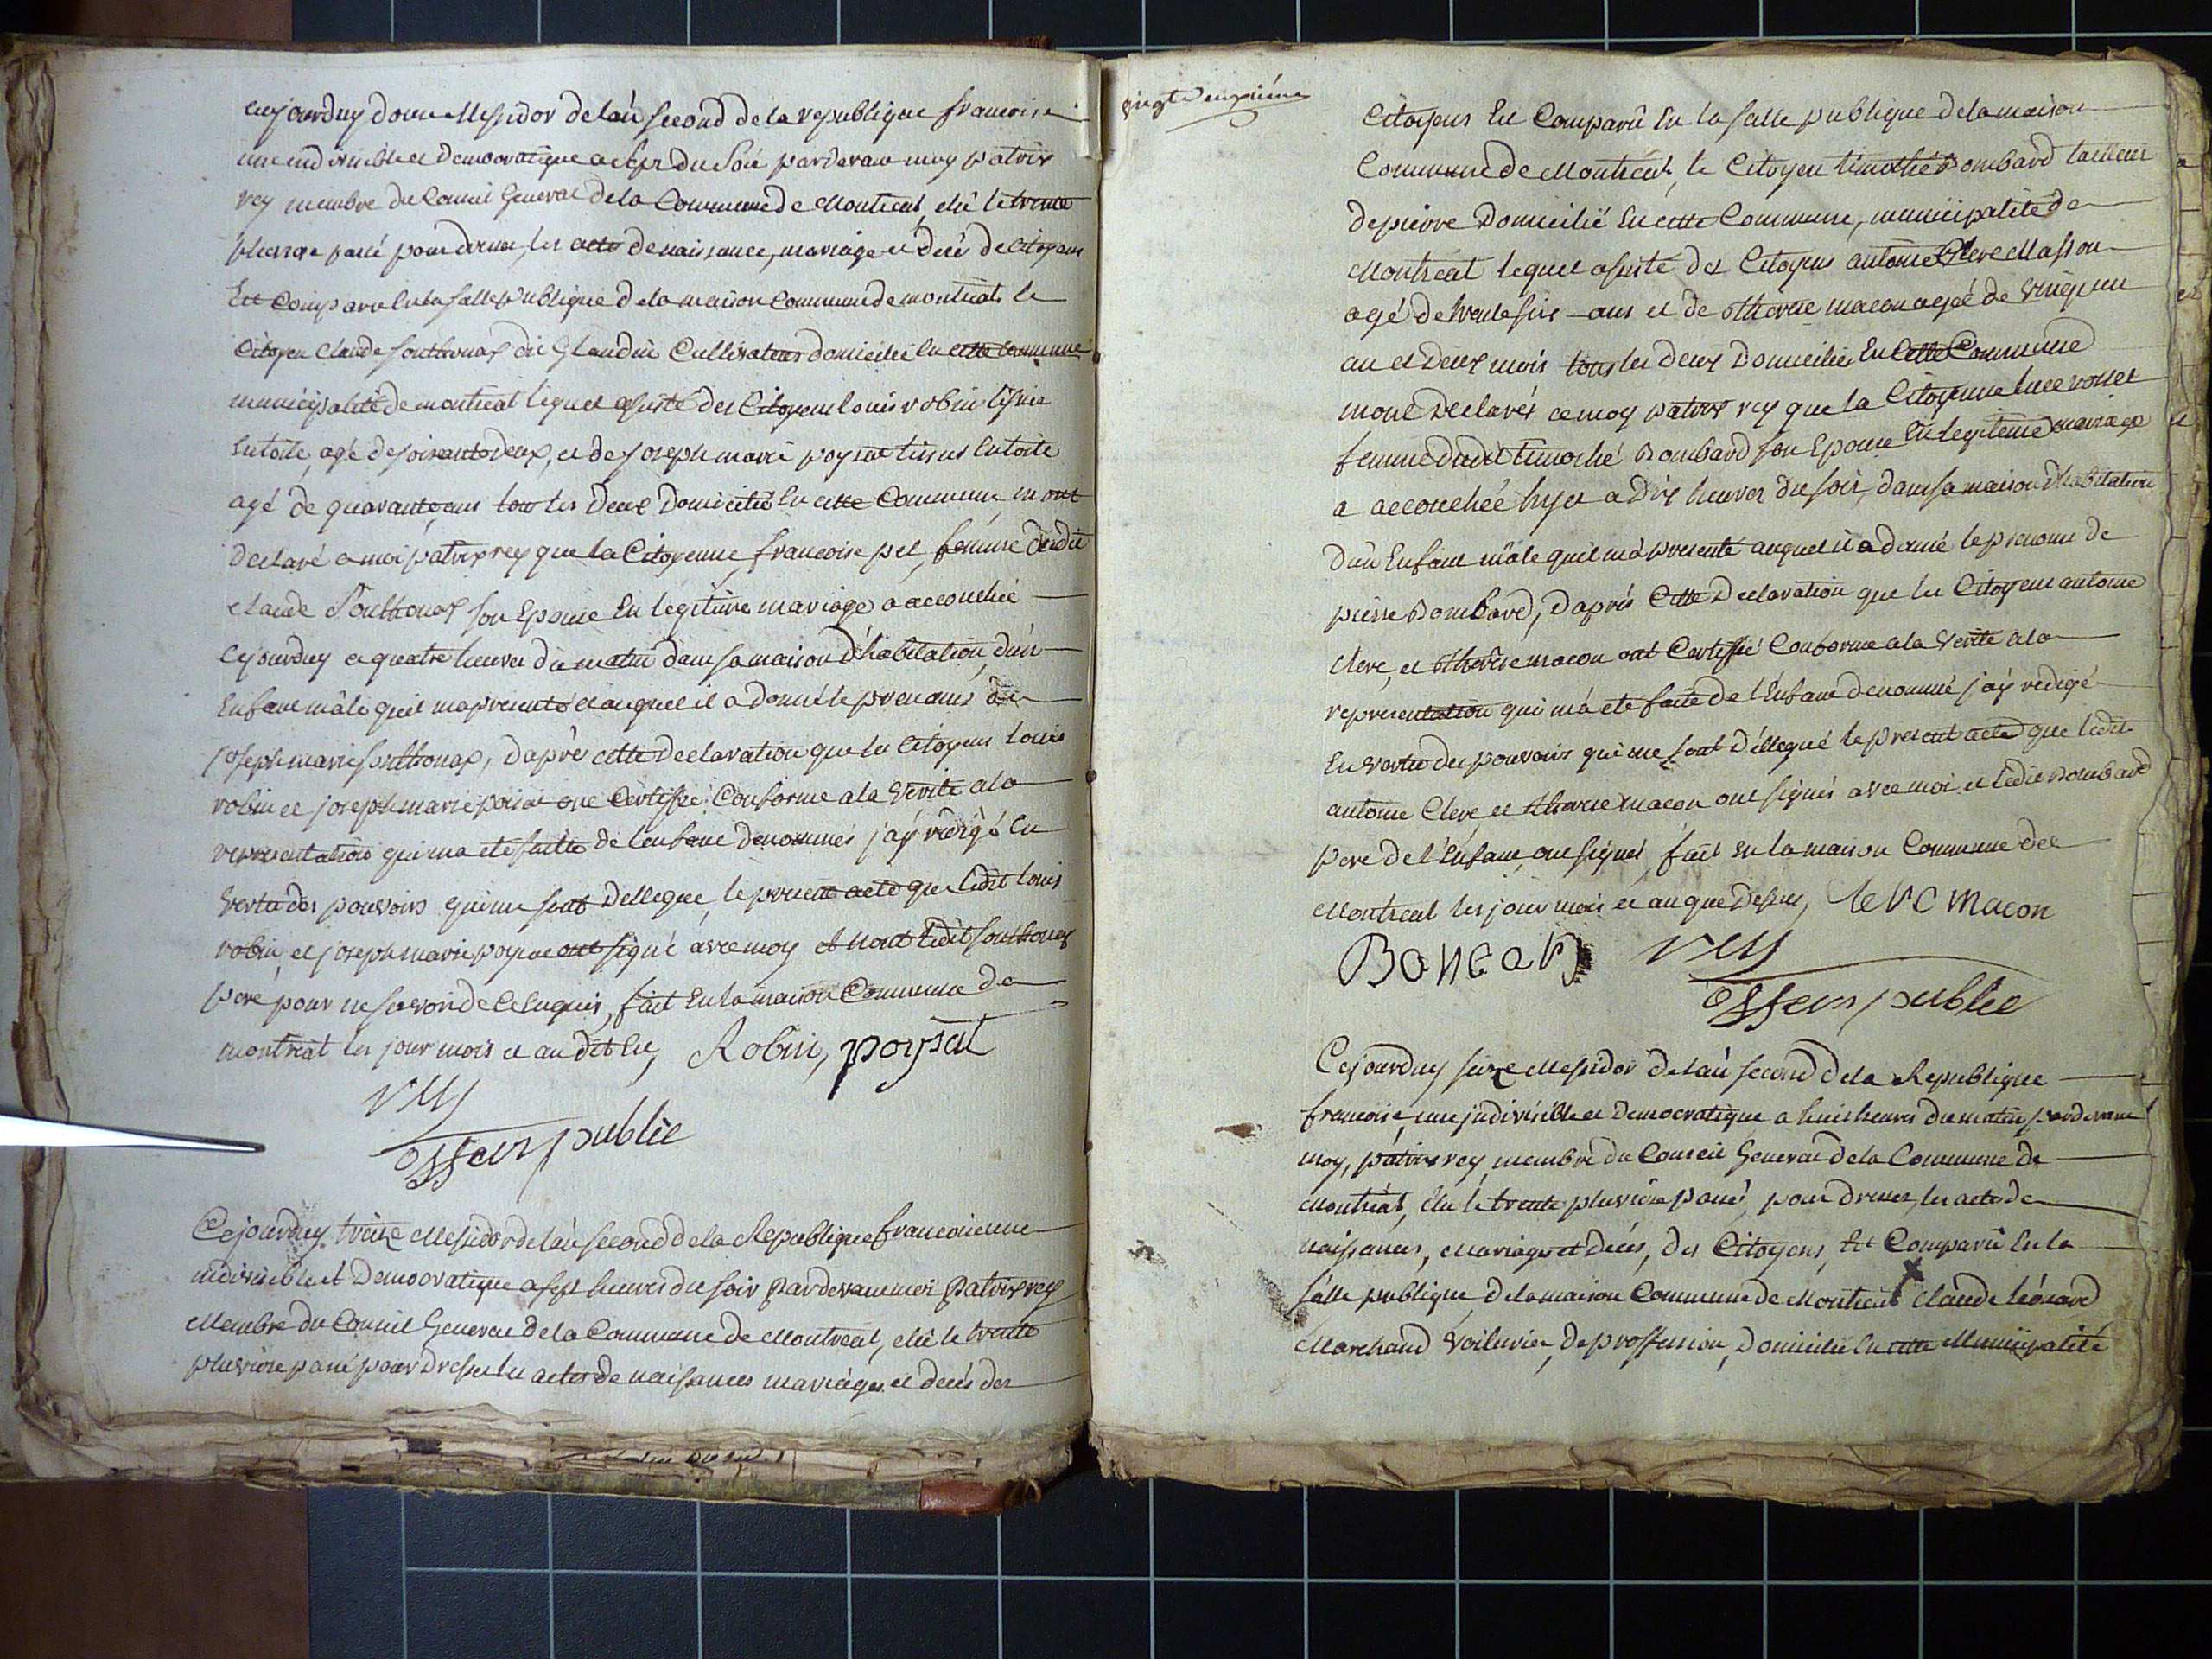 cejourduy douze Messidor de l'an second de la republique francoise
une indivisible et democratique a sept du soir pardevant moy patrix
rey membre du Conseil General de la Commune de Montreal, elu le trente
pluviose passé pour dresser les actes de naissance, mariage et décès de Citoyens
Est Comparu en la salle publique de la maison Commune de montreal le
Citoyen Claude Sonthonax dit Glaudin Cultivateur domicilié en cette Commune
municipalité de montreal lequel assisté des Citoyens louis robin tissie
en toile, agé de soixante deux, et de joseph marie poysat tissus en toile
agé de quarante ans tous les deux Domiciliés en cette Commune, m'ont
declaré a moi patrix rey que la Citoyenne francoise pel, femme dudit
claude Sonthonax son Epouse En legitime mariage a accouchée
cejourduy a quatre heures du matin dans sa maison d'habitation d'un
Enfant mâle quil ma presenté et auquel il a donné le prenoms de
joseph marie Sonthonax, d'après cette declaration que les Citoyens louis
robin et joseph marie poisat ont Certiffié Conforme a la Verité a la
representation qui ma eté faitte de l'enfant denommés j'aÿ rédigé En
Vertu des pouvoirs qui me sont dellegue, le present acte que ledit louis
robin, et joseph marie poysat ont signé avec moy et non ledit Sonthonax
pere pour ne savoir de ce Enquis, fait En la maison Commune de
montreal les jour mois et an dit En, Robin, poysat
rey
offcier public
Cejourduy treize Messidor de l'an second de la Republique francoise une
indivisible et Democratique a sept heures du soir pardevant moi patrix rey
Membre du Conseil General de la Commune de Montreal, elu le trente
pluviose passé pour Dresser les actes de naissances mariages et décès des
vingt deuxiéme
Citoyens Est Comparû En la salle publique de la maison
Commune de Montreal, le Citoyen timothé Bombard tailleur
de pierre Domicilié En cette Commune, municipalité de
Montreal lequel assisté des Citoyens antoine Clere Masson
agé de trente six ans et de therese macon agée de Vingt un
an et deux mois tous les deux Domiciliés En Cette Commune
mont Declarés a moy patrix rey que la Citoyenne luce rosset
femme dudit timothé Bombard son Epouse En legitime mariage
a accouchée hyer a dix heures du soir, dans sa maison d'habitation
d'un Enfant mâle quil m'a presenté auquel il a donné le prenoms de
pierre Bombard, d'aprés Cette Declaration que les Citoyens antoine
clere, et therese macon ont Certiffié Conforme a la Verité a la
representation qui m'a eté faite de l'Enfant denommé j'aÿ rédigé
En vertu des pouvoirs qui me sont déllegué le present acte que ledit
antoine Clere et therese macon ont signés avec moi et ledit Bombard
pere de l'Enfant, ont signés, fait En la maison Commune de
Montreal les jour mois et an que dessus, Macon
rey
offcier public
Cejourduy seize Messidor de l'an second de la Republique
francoise une jndivisible et Democratique a huit heures du matin pardevant
moy, patrix rey, membre du Conseil General de la Commune de
Montreal, Elu le trente pluviose passé, pour dresser, les actes de
naissances, Mariages et décés, des Citoyens, Est Comparû En la
sâlle publique de la maison Commune de Montreal Claude léonard
Marchand Voiturier, de proffession, domicilié En cette Municipalité